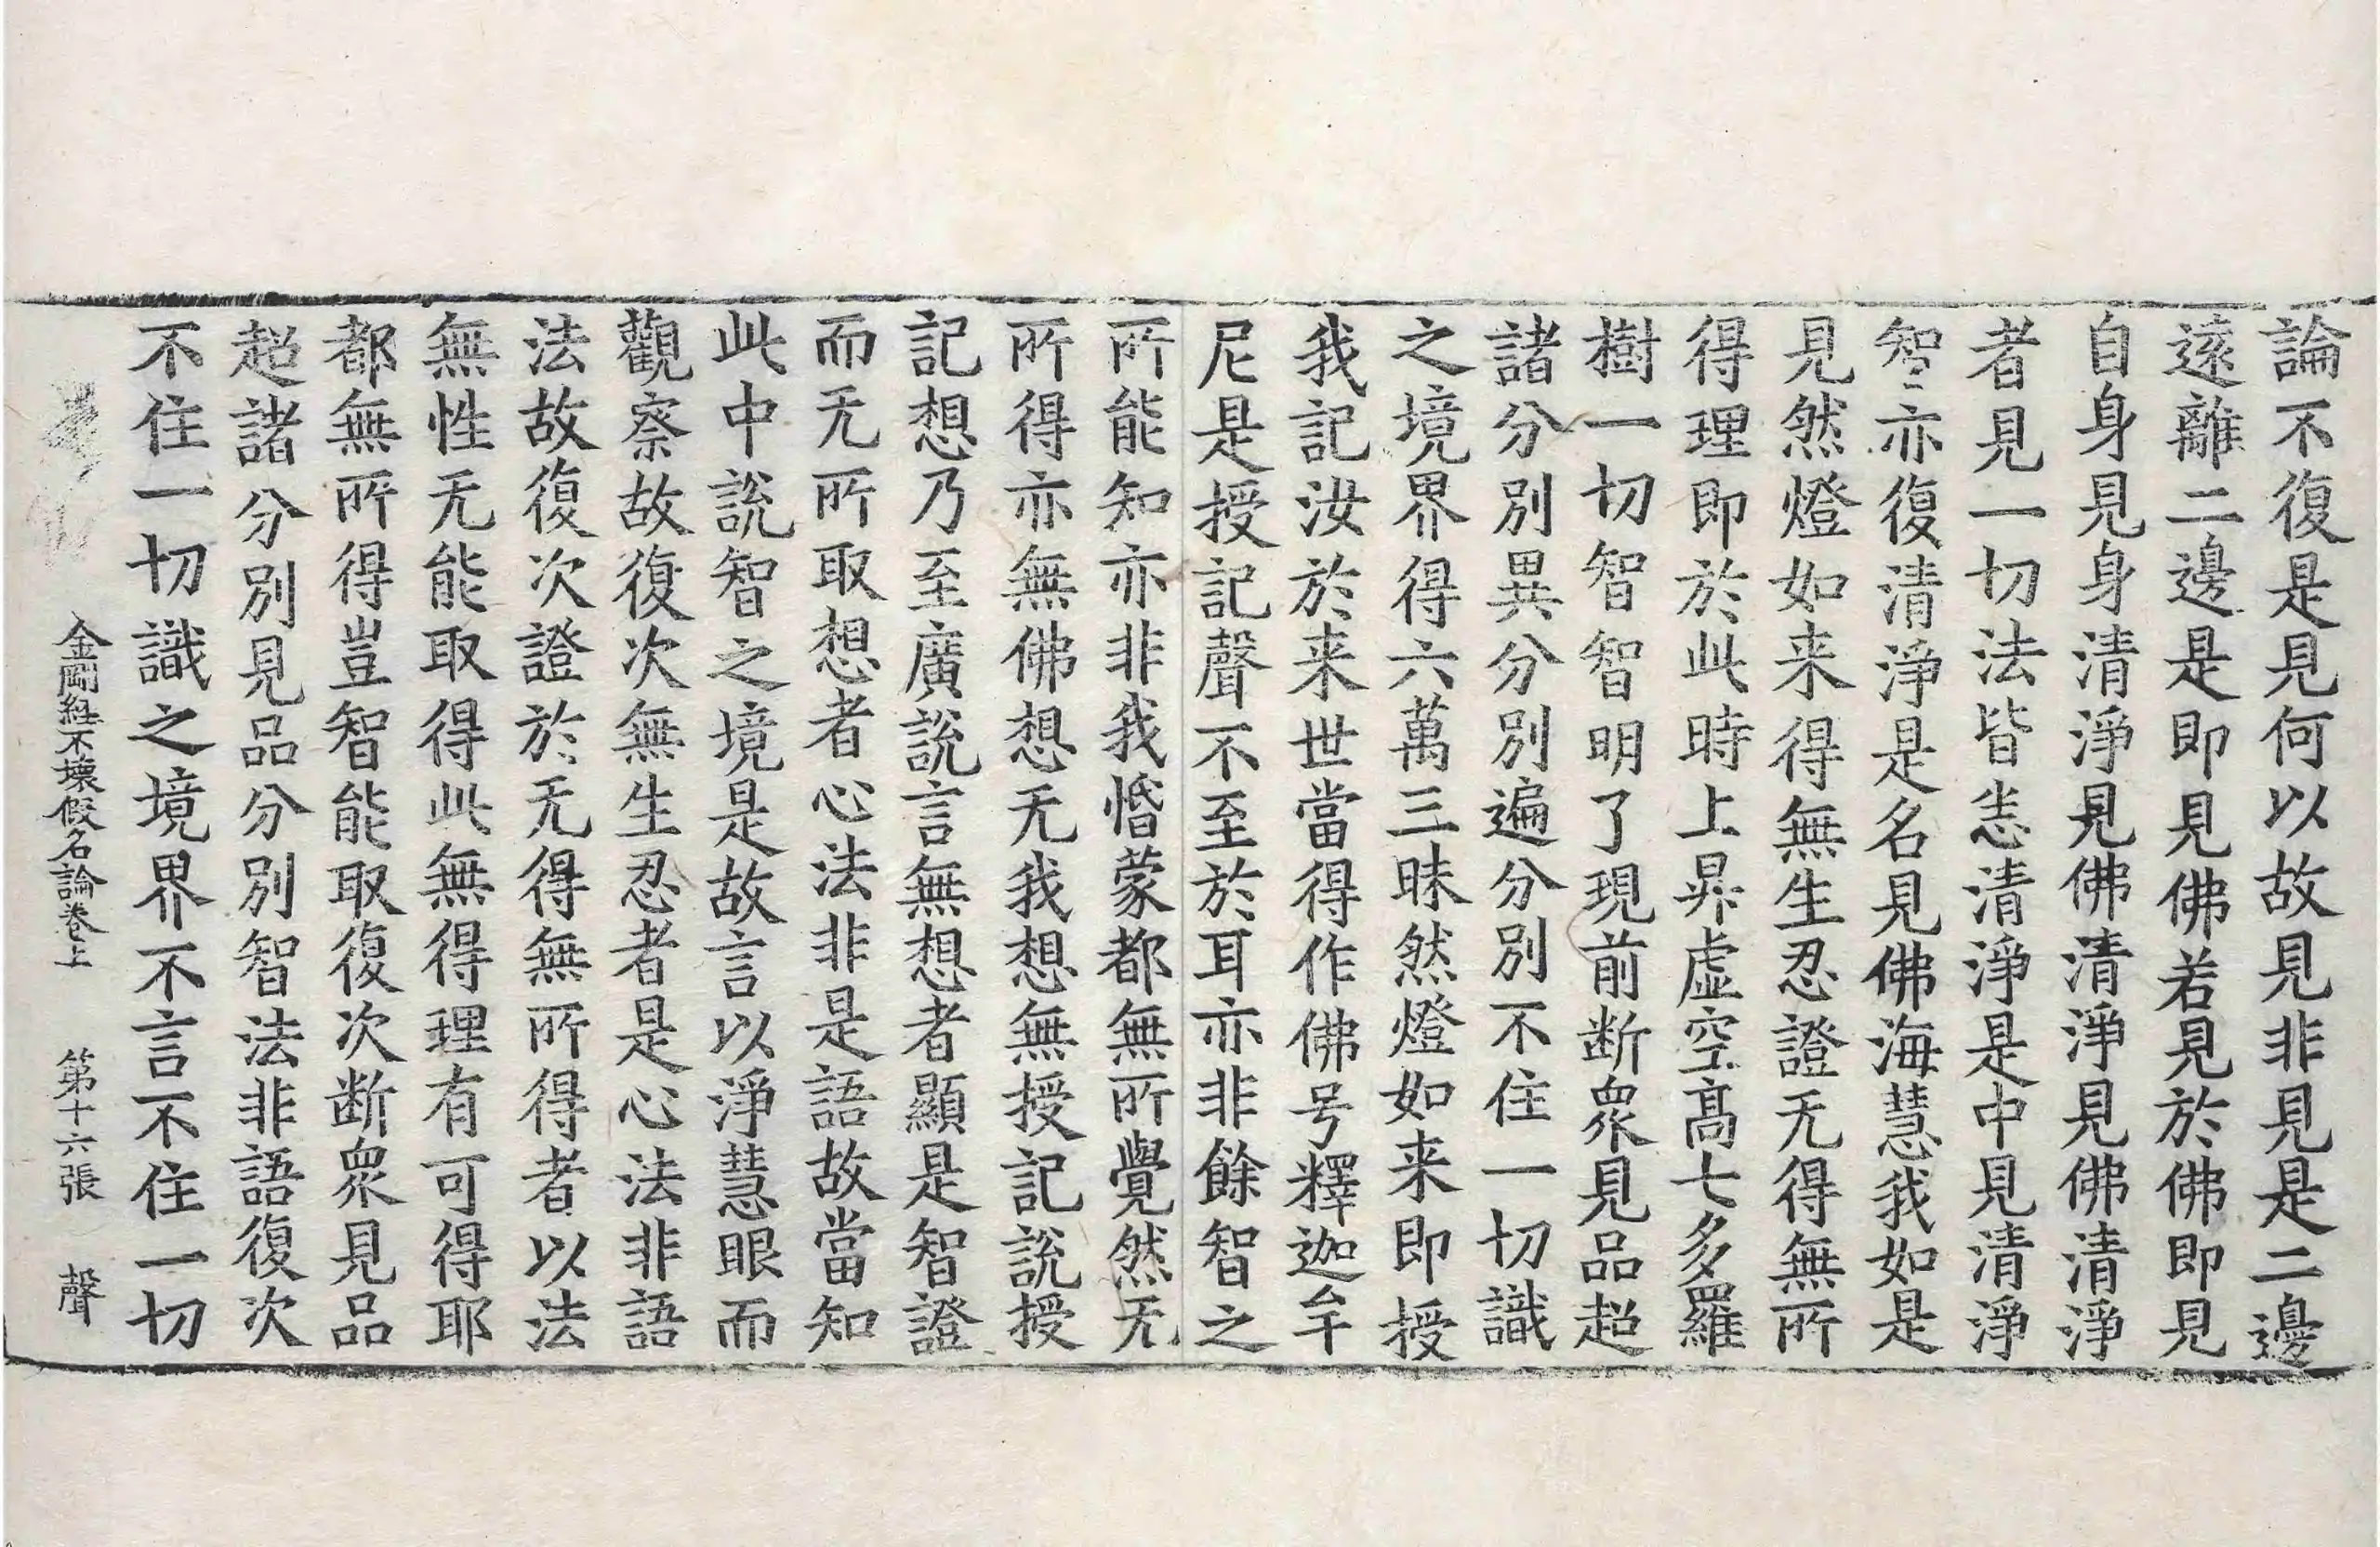 論不復是見何以故見非見是二邊
遠離二邊是即見佛若見於佛即見
自身見身清淨見佛清淨見佛清淨
者見一切法皆悉清淨是中見清淨
智〻亦復清淨是名見佛海慧我如是
見然燈如来得無生忍證无得無所
得理即於此時上昇虚空高七多羅
樹一切智智明了現前断衆見品超
諸分別異分別遍分別不住一切識
之境界得六萬三昧然燈如来即授
我記汝於来世當得作佛号釋迦牟
尼是授記聲不至於耳亦非餘智之
所能知亦非我惛蒙都無所覺然无
所得亦無佛想无我想無授記說授
記想乃至廣說言無想者顯是智證
而无所取想者心法非是語故當知
此中說智之境是故言以淨慧眼而
觀察故復次無生忍者是心法非語
法故復次證於无得無所得者以法
無性无能取得此無得理有可得耶
都無所得豈智能取復次断衆見品
超諸分別見品分別智法非語復次
不住一切識之境界不言不住一切
金剛経不壊假名論卷上 第十六張 聲